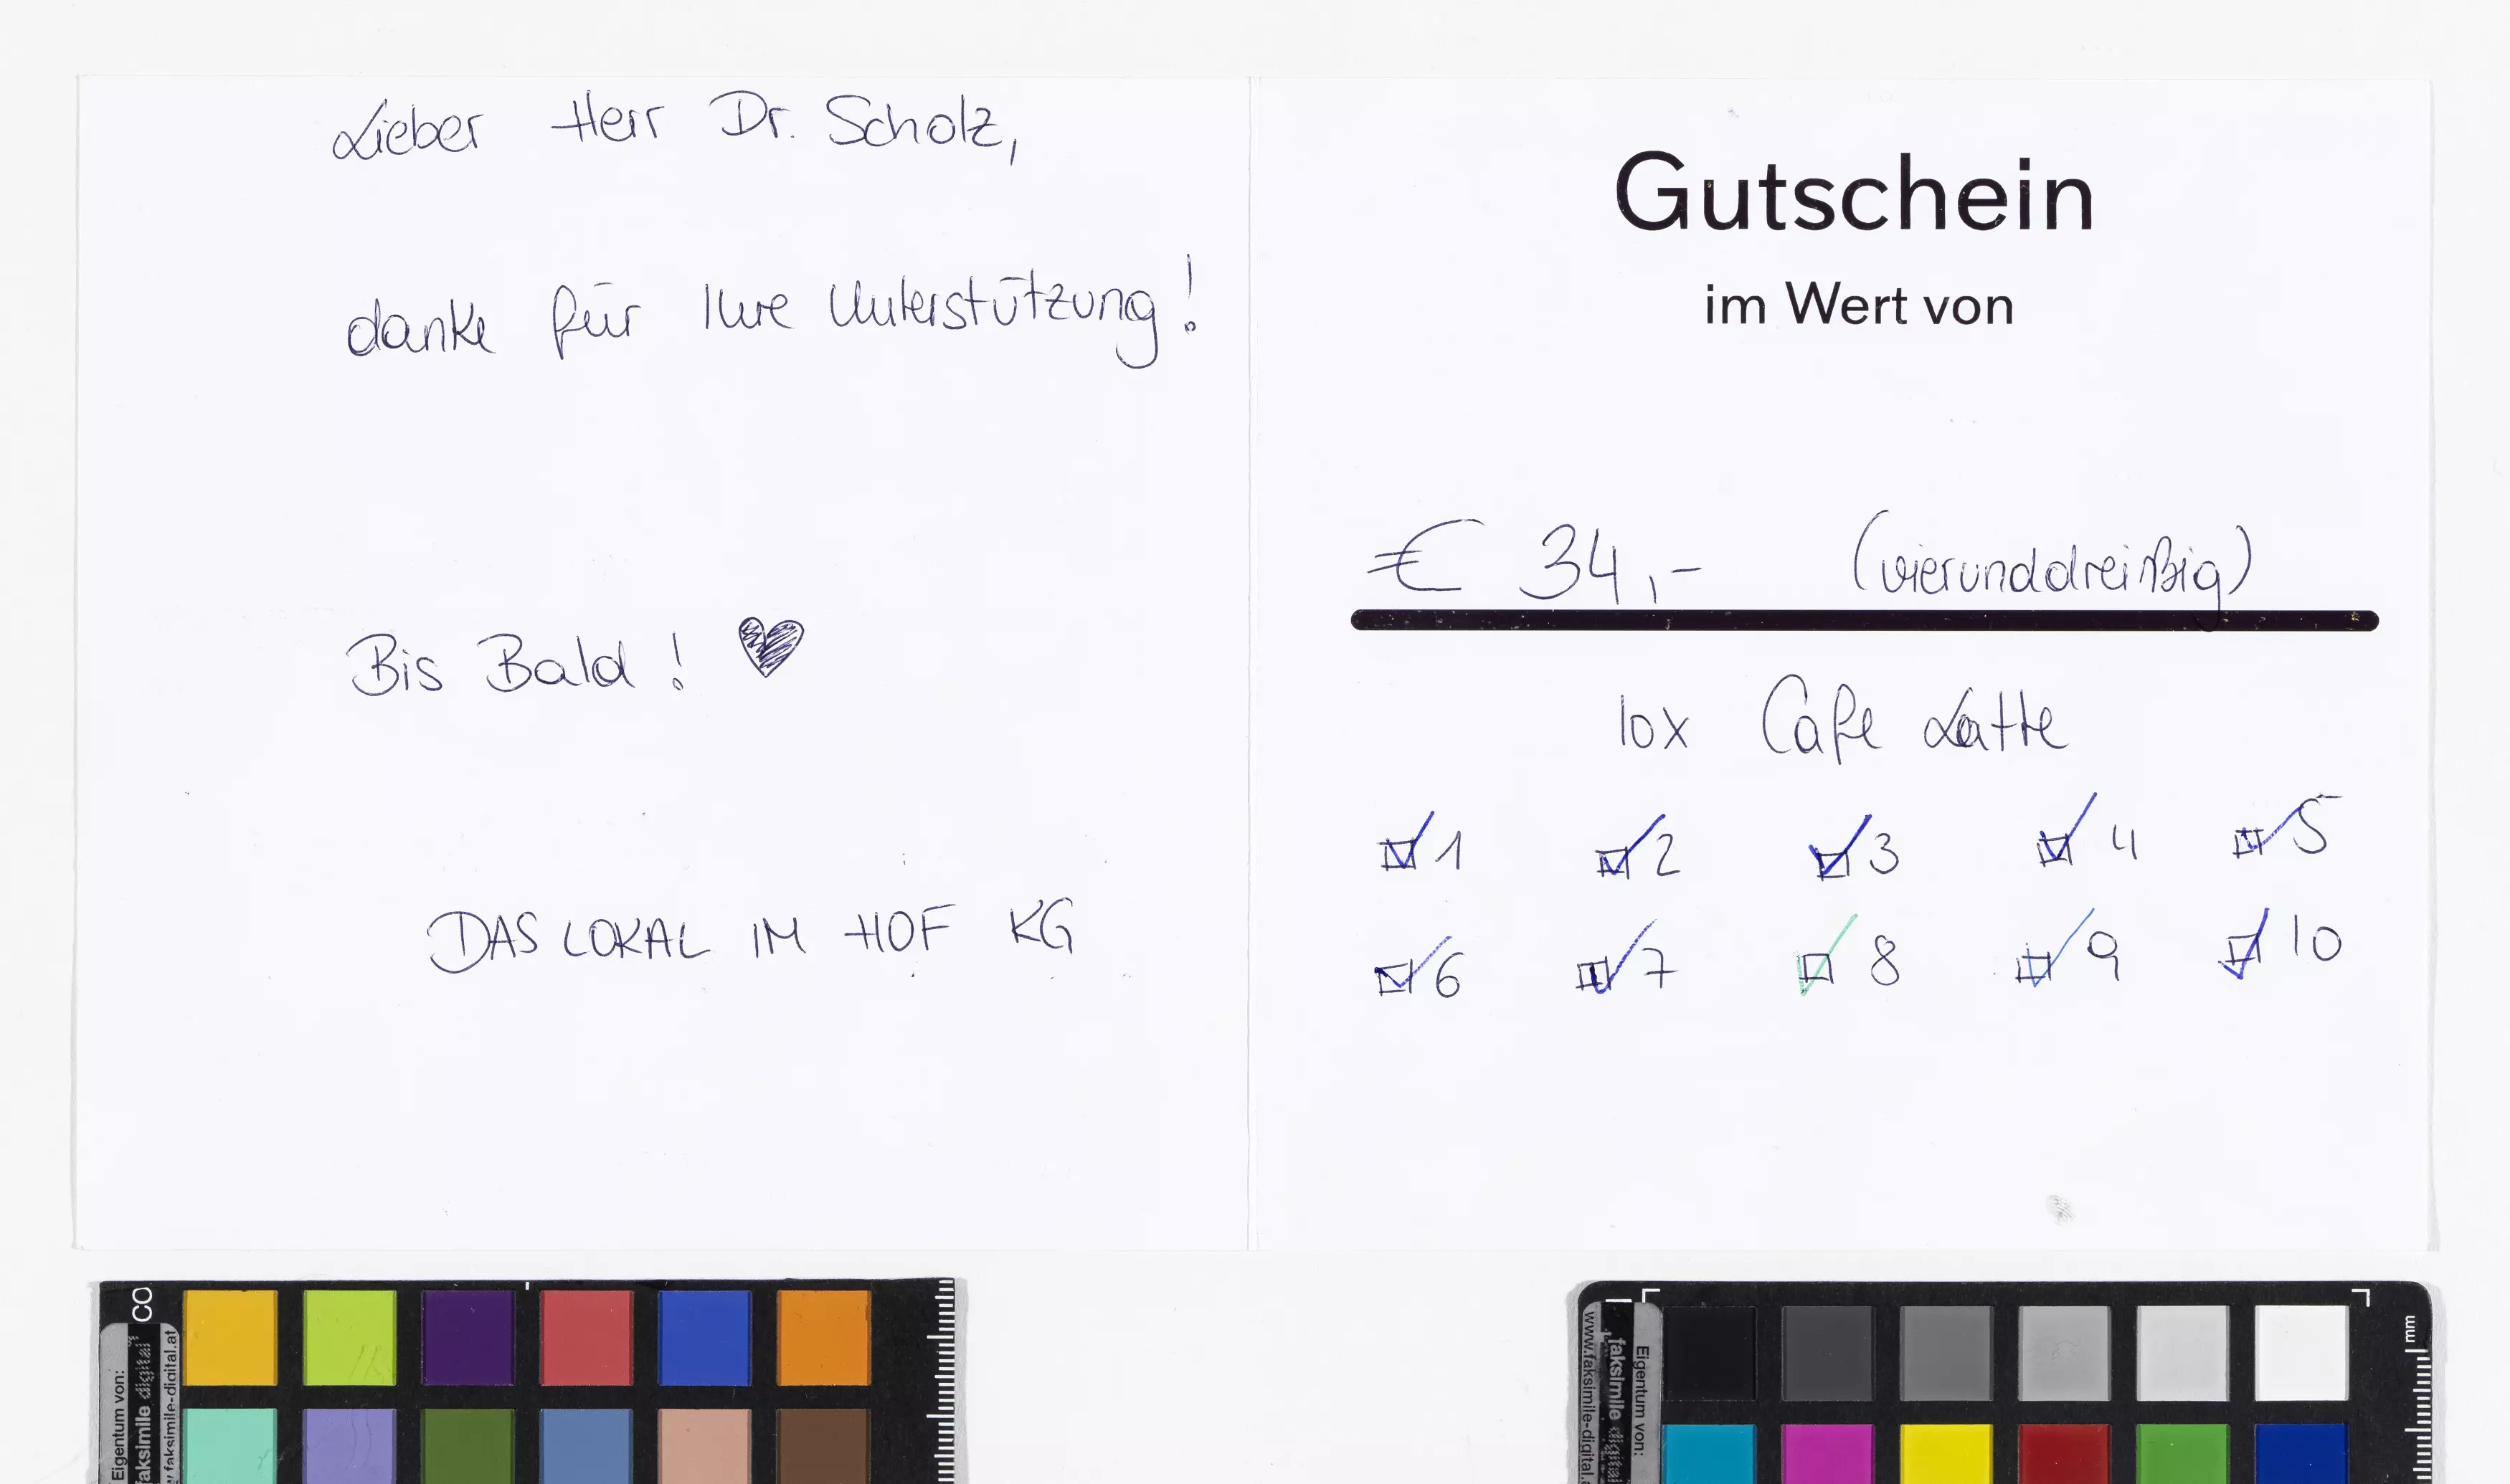 Lieber Herr Dr. Scholz,
danke für Ihre Unterstützung!
Bis Bald! ♥
DAS LOKAL IM HOF KG
Gutschein
im Wert von
€ 34,- (vierunddreißig)
10x Cafe Latte
☑ 1 ☑ 2 ☑ 3 ☑ 4 ☑ 5
☑ 6 ☑ 7 ☑ 8 ☑ 9 ☑ 10
CO
Eigentum von:
faksimile digital
www.faksimile-digital.at
mm
Eigentum von:
faksimile digital
www.faksimile-digital.